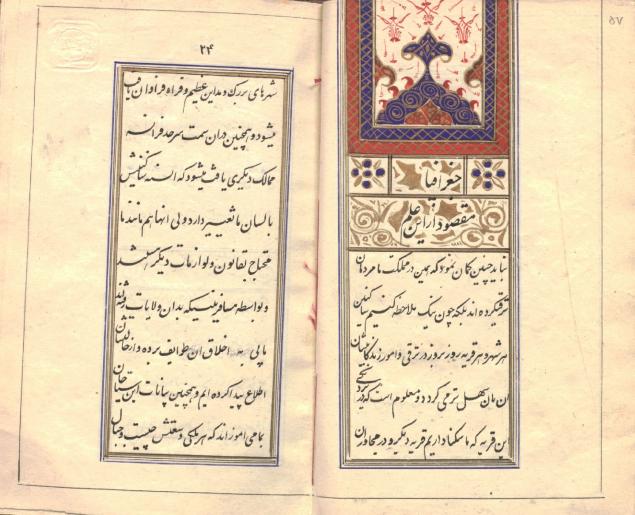 ۵۷
جغرافیا
مقصود از این علم
نباید چنین گمان نمود که همین در مملکت ما مردمان
ترقی کرده اند بلکه چون نیک ملاحظه کنیم ساکنین
هر شهر و هر قریه روز بروز در ترقی و امور زندگانی
ان مان سهل ترمی کردد و معلوم است که در
این قریه که ما سکنا داریم قریه دیگر و در مجاور ان
۲۴
شهرهای بزرک و مداین عظیم و قراء فراوان یافت
میشود و همچنین دران سمت سرحد فرانسه
ممالک دیگری یافت میشود که السنه ساکنینش
با لسان ما تغییر دارد ولی انها هم مانند ما
محتاج بقانون و لوازمات دیگر میباشند
و بواسطه مسافرینیکه بدان ولایات رفته اند
ما پی به اخلاق ان طوایف برده و از حالشان
اطلاع پیدا کرده ایم و همچنین بیانات این سیاحان
بما می اموزاند که هر ملکی وسعتش چیست و جبال